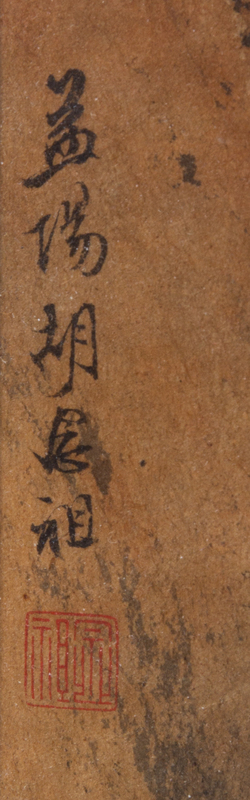 益陽胡恩祖